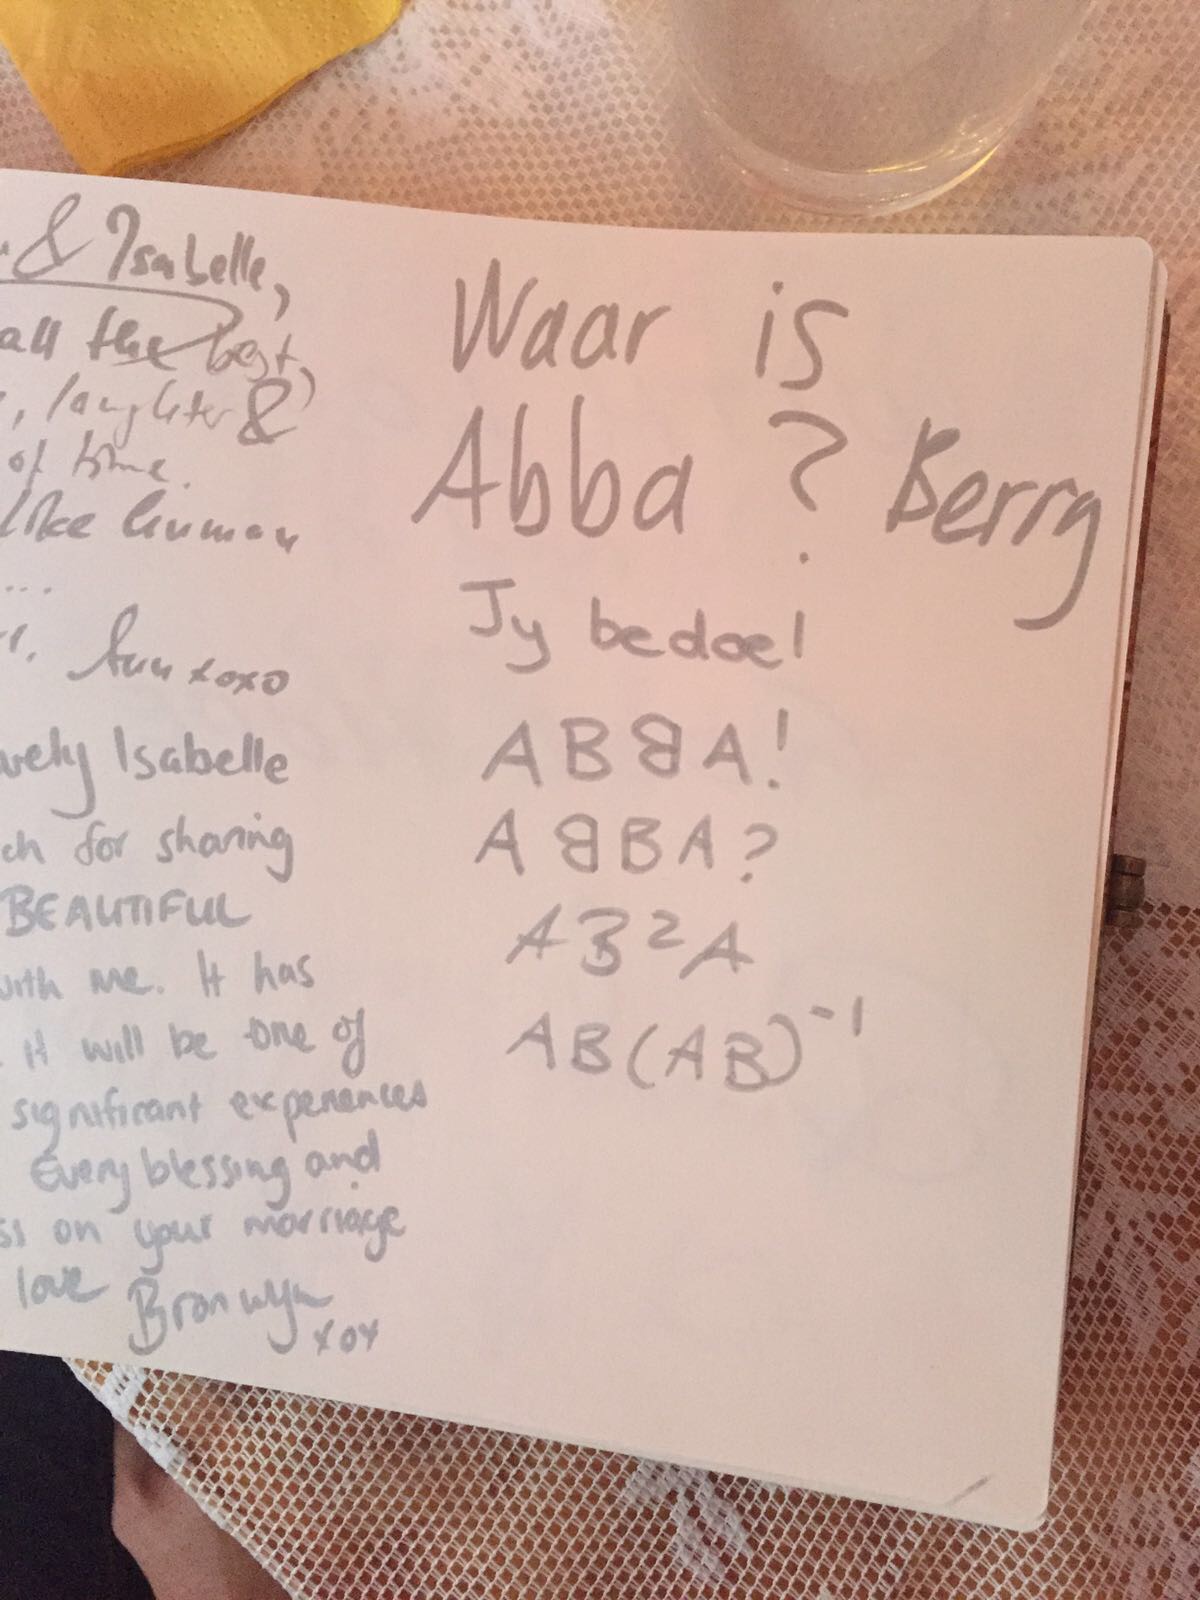 & Isabelle,
all the best,
, laughter &
of time.
like human
...
xoxo
Isabelle
for sharing
BEAUTIFUL
with me. It has
it will be one of
significant experiences
Every blessing and
on your marriage
love Bronwyn
xox
Waar is
Abba? Berry
Jy bedoel
ABBA!
ABBA?
AB²A
AB(AB)⁻¹